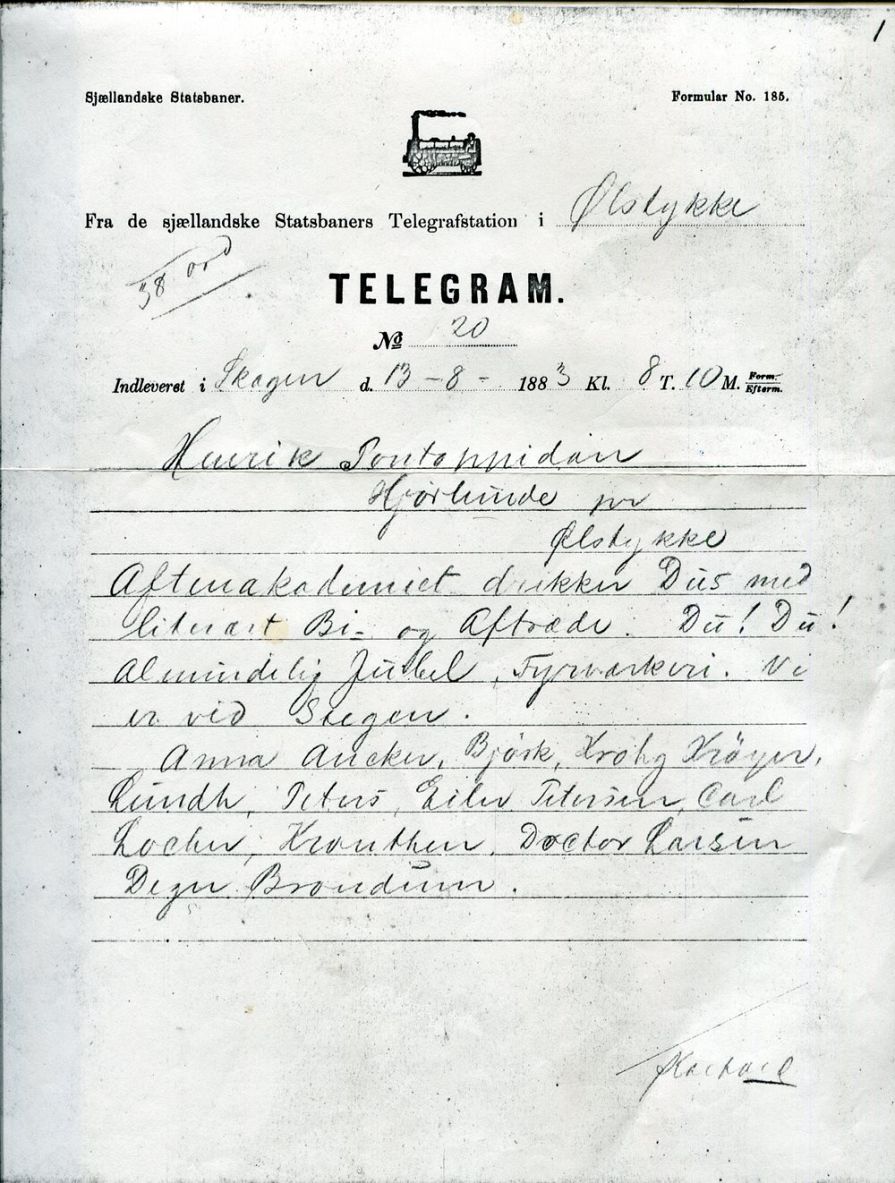 1
Sjællandske Statsbaner. Formular No. 185.
Fra de sjællandske Statsbaners Telegrafstation i Ølstykke
38 ord
TELEGRAM.
No 20
Indleveret i Skagen d. 13 - 8 - 1883 Kl. 8 T. 10 M. Form. Efterm.
Henrik Pontoppidan
Hjørlunde pr
Ølstykke
Aftenakademiet drikker Dus med
literært Bi- og Aftræde. Du! Du!
Almindelig Jubel, Fyrværkeri. Vi
er ved Stegen.
Anna Ancker, Björk, Krohg Kröyer,
Lundh, Peters, Eiler Petersen, Carl
Locher, Krouthen, Doctor Larsen
Degn Brøndum.